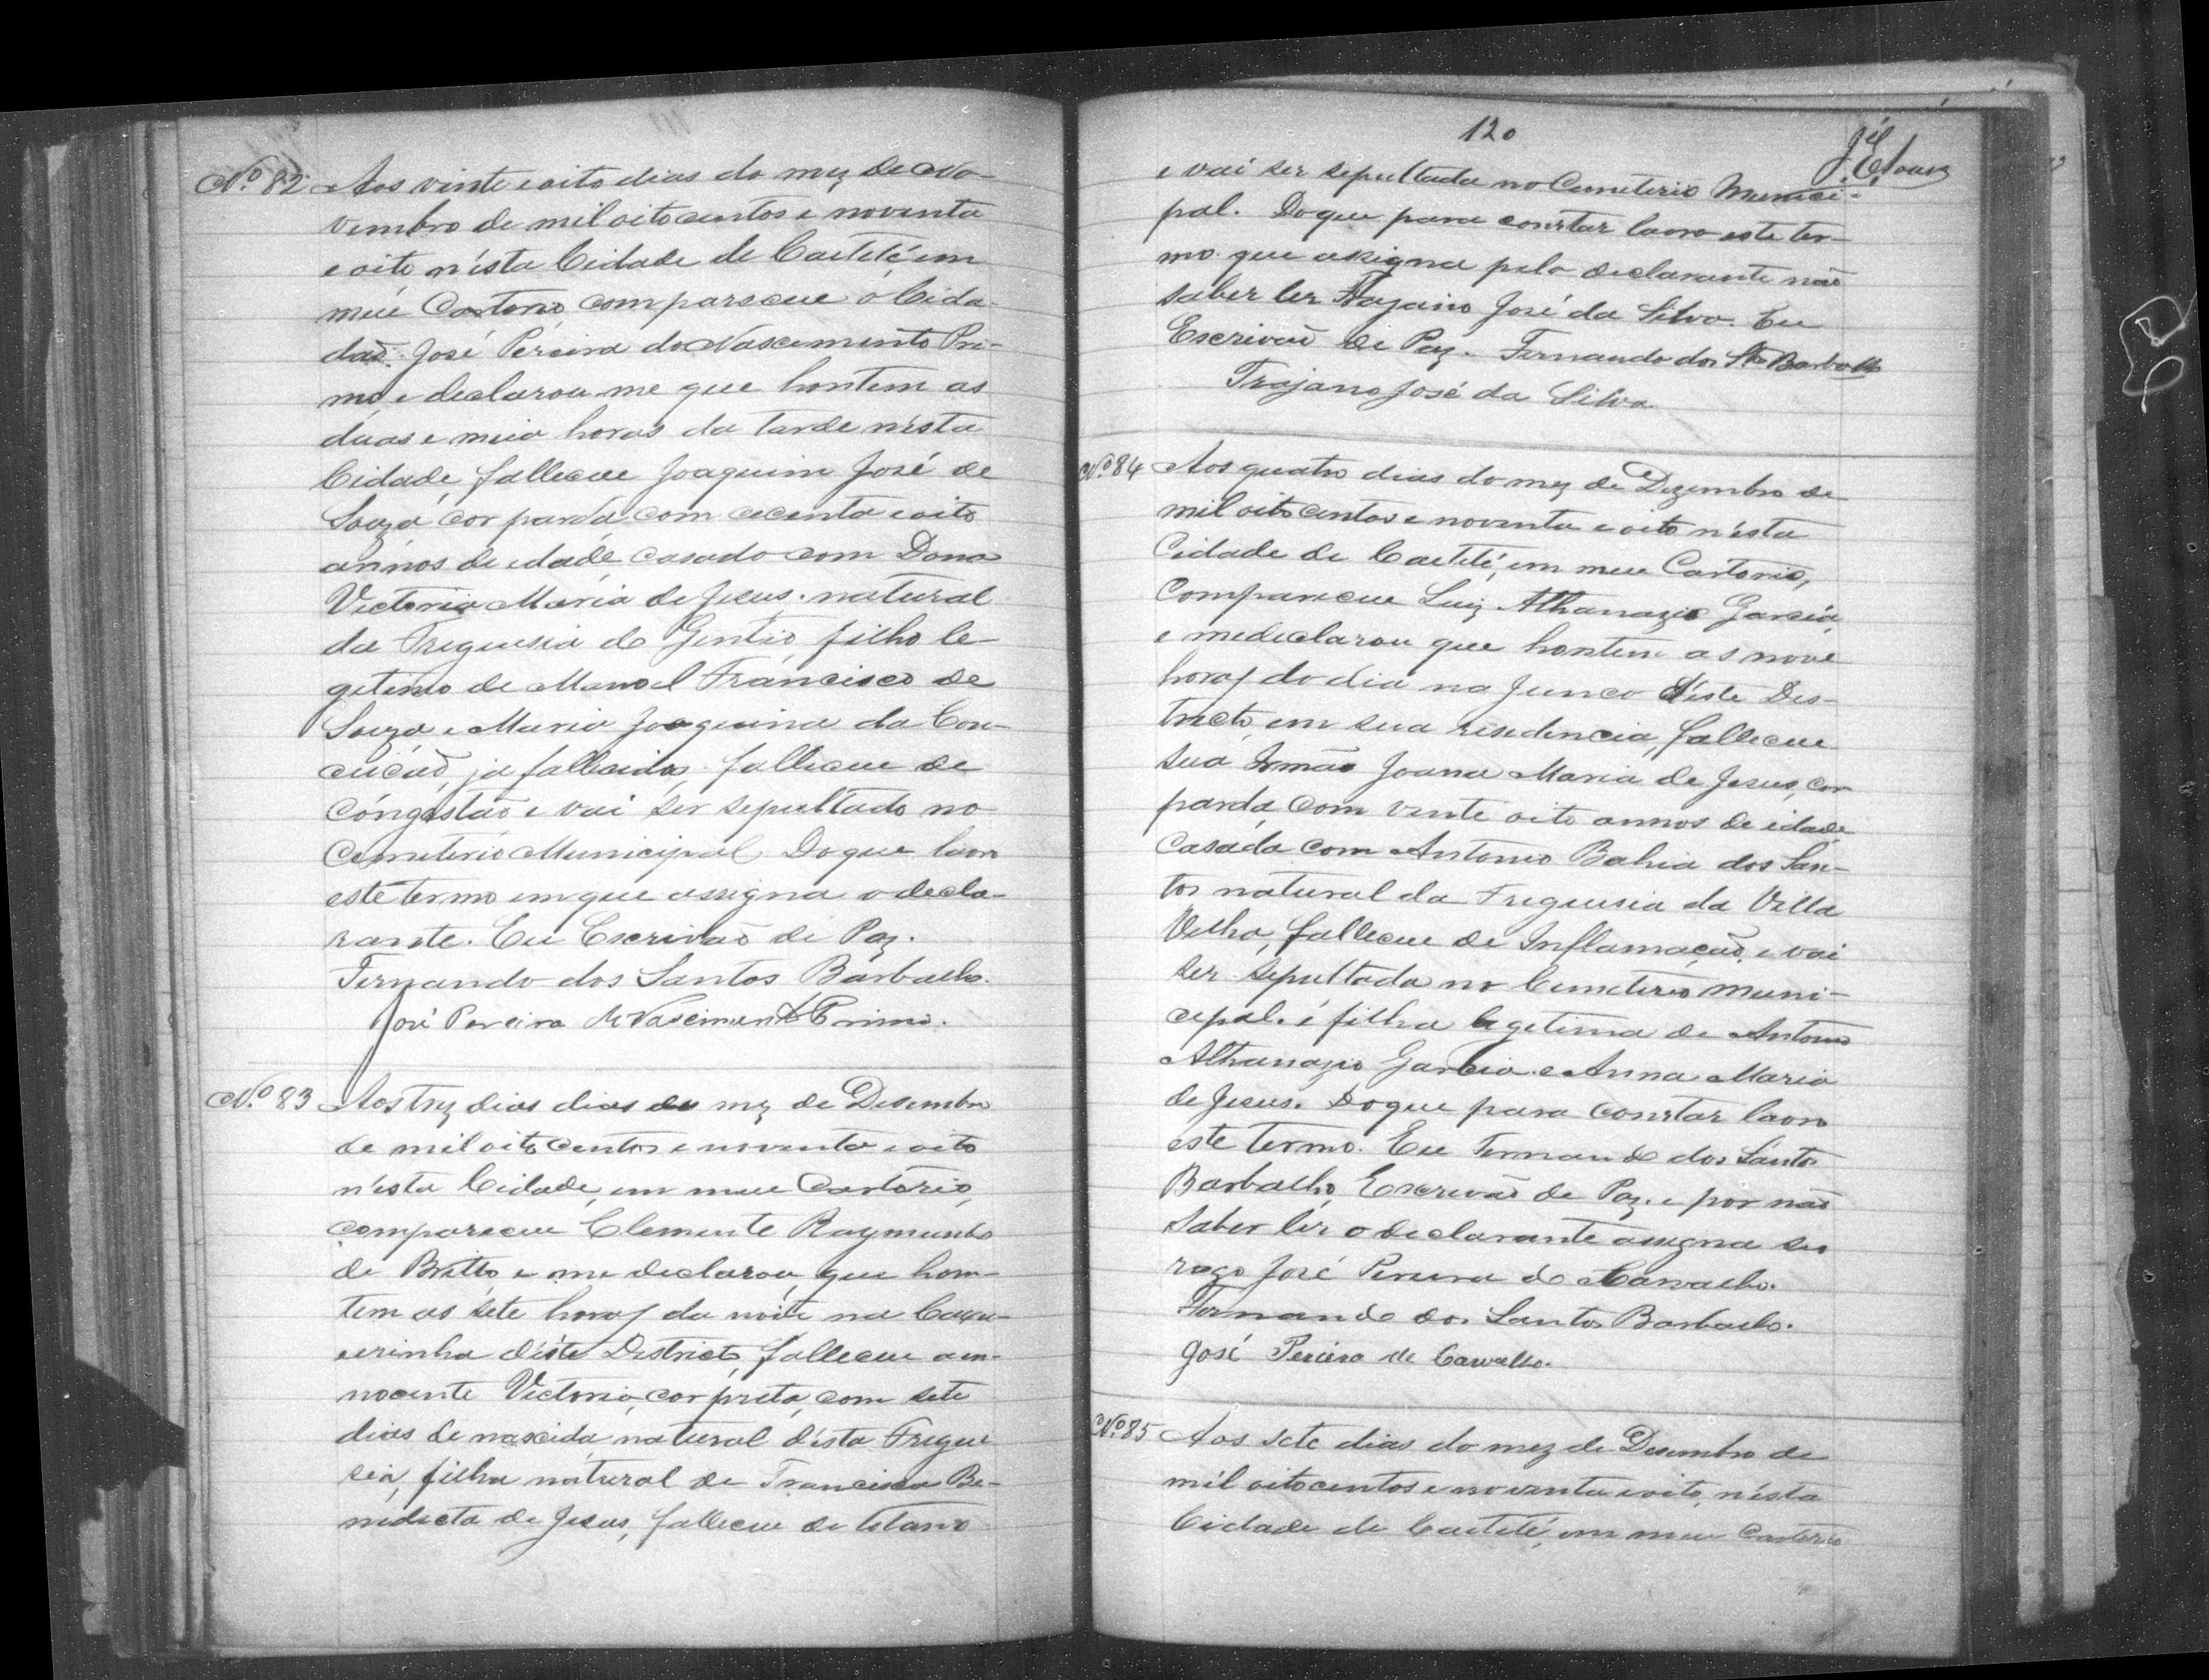 Nº 82 Aos vinte e oito dias do mez de No-
vembro de mil oito centos e noventa
e oito n'ésta Cidade de Caeteté em
meu Cartorio, compareceu o Cida-
dão José Pereira do Nascimento Pri-
mo, e declarou me que hontem as
duas e meia horas da tarde n'ésta
Cidade, falleceu Joaquim José de
Souza, cor parda, com cecenta e oito
annos de edade, casado com Dona
Victoria Maria de Jesus. natural
da Freguesia de Gentio, filho le-
getimo de Manoel Francisco de
Souza e Maria Joaquina da Con-
ceicão, ja fallecidos. falleceu de
congestão e vai ser sepultado no
Cemeterio Municipal. Do que lavro
este termo em que assigna o decla-
rante. Eu Escrivão de Paz.
Fernando dos Santos Barbalho.
José Pereira do Nascimento Primo.
Nº 83 Aos trez dias dias do mez de Desembro
de mil oito centos e noventa e oito
n'ésta Cidade, em meu Cartorio,
compareceu Clemente Raymundo
de Britto, e me declarou que hon-
tem as sete horas da noite na Caxu-
eirinha d'éste Districto, falleceu a in-
nocente Victoria, cor preta, com sete
dias de nascida, natural d'ésta Fregue
sia, filha natural de Francisca Be-
nedicta de Jesus, falleceu de tetano
120
e vai ser sepultada no Cemeterio Munici-
pal. Do que para constar lavro este ter-
mo. que assigna pelo declarante não
saber ler Trajano José da Silva. Eu
Escrivão de Paz. Fernando dos Stos Barbalho
Trajano José da Silva
Nº 84 Aos quatro dias do mez de Dezembro de
mil oito centos e noventa e oito n'ésta
Cidade de Caeteté, em meu Cartorio,
Compareceu Luiz Athanazio Garcia,
e me declarou que hontem as nove
horas do dia no Junco d'éste Des-
tricto, em sua residencia, falleceu
sua Irmão Joana Maria de Jesus, cor
parda, com vinte oito annos de idade
Casada com Antonio Bahia dos San-
tos natural da Freguesia da Villa
Velha, falleceu de Inflamacão, e vai
ser sepultada no Cemeterio Muni-
cepal. é filha legetima de Antonio
Athanazio Garcia e Anna Maria
de Jesus. Do que para constar lavro
este termo. Eu Fernando dos Santos
Barbalho, Escrevão de Paz. e por não
saber ler o declarante assigna seo
rogo José Pereira de Carvalho.
Fernando dos Santos Barbalho.
José Pereira de Carvalho.
Nº 85 Aos sete dias do mez de Desembro de
mil oito centos e noventa e oito, n'ésta
Cidade de Caeteté, em meu Cartorio